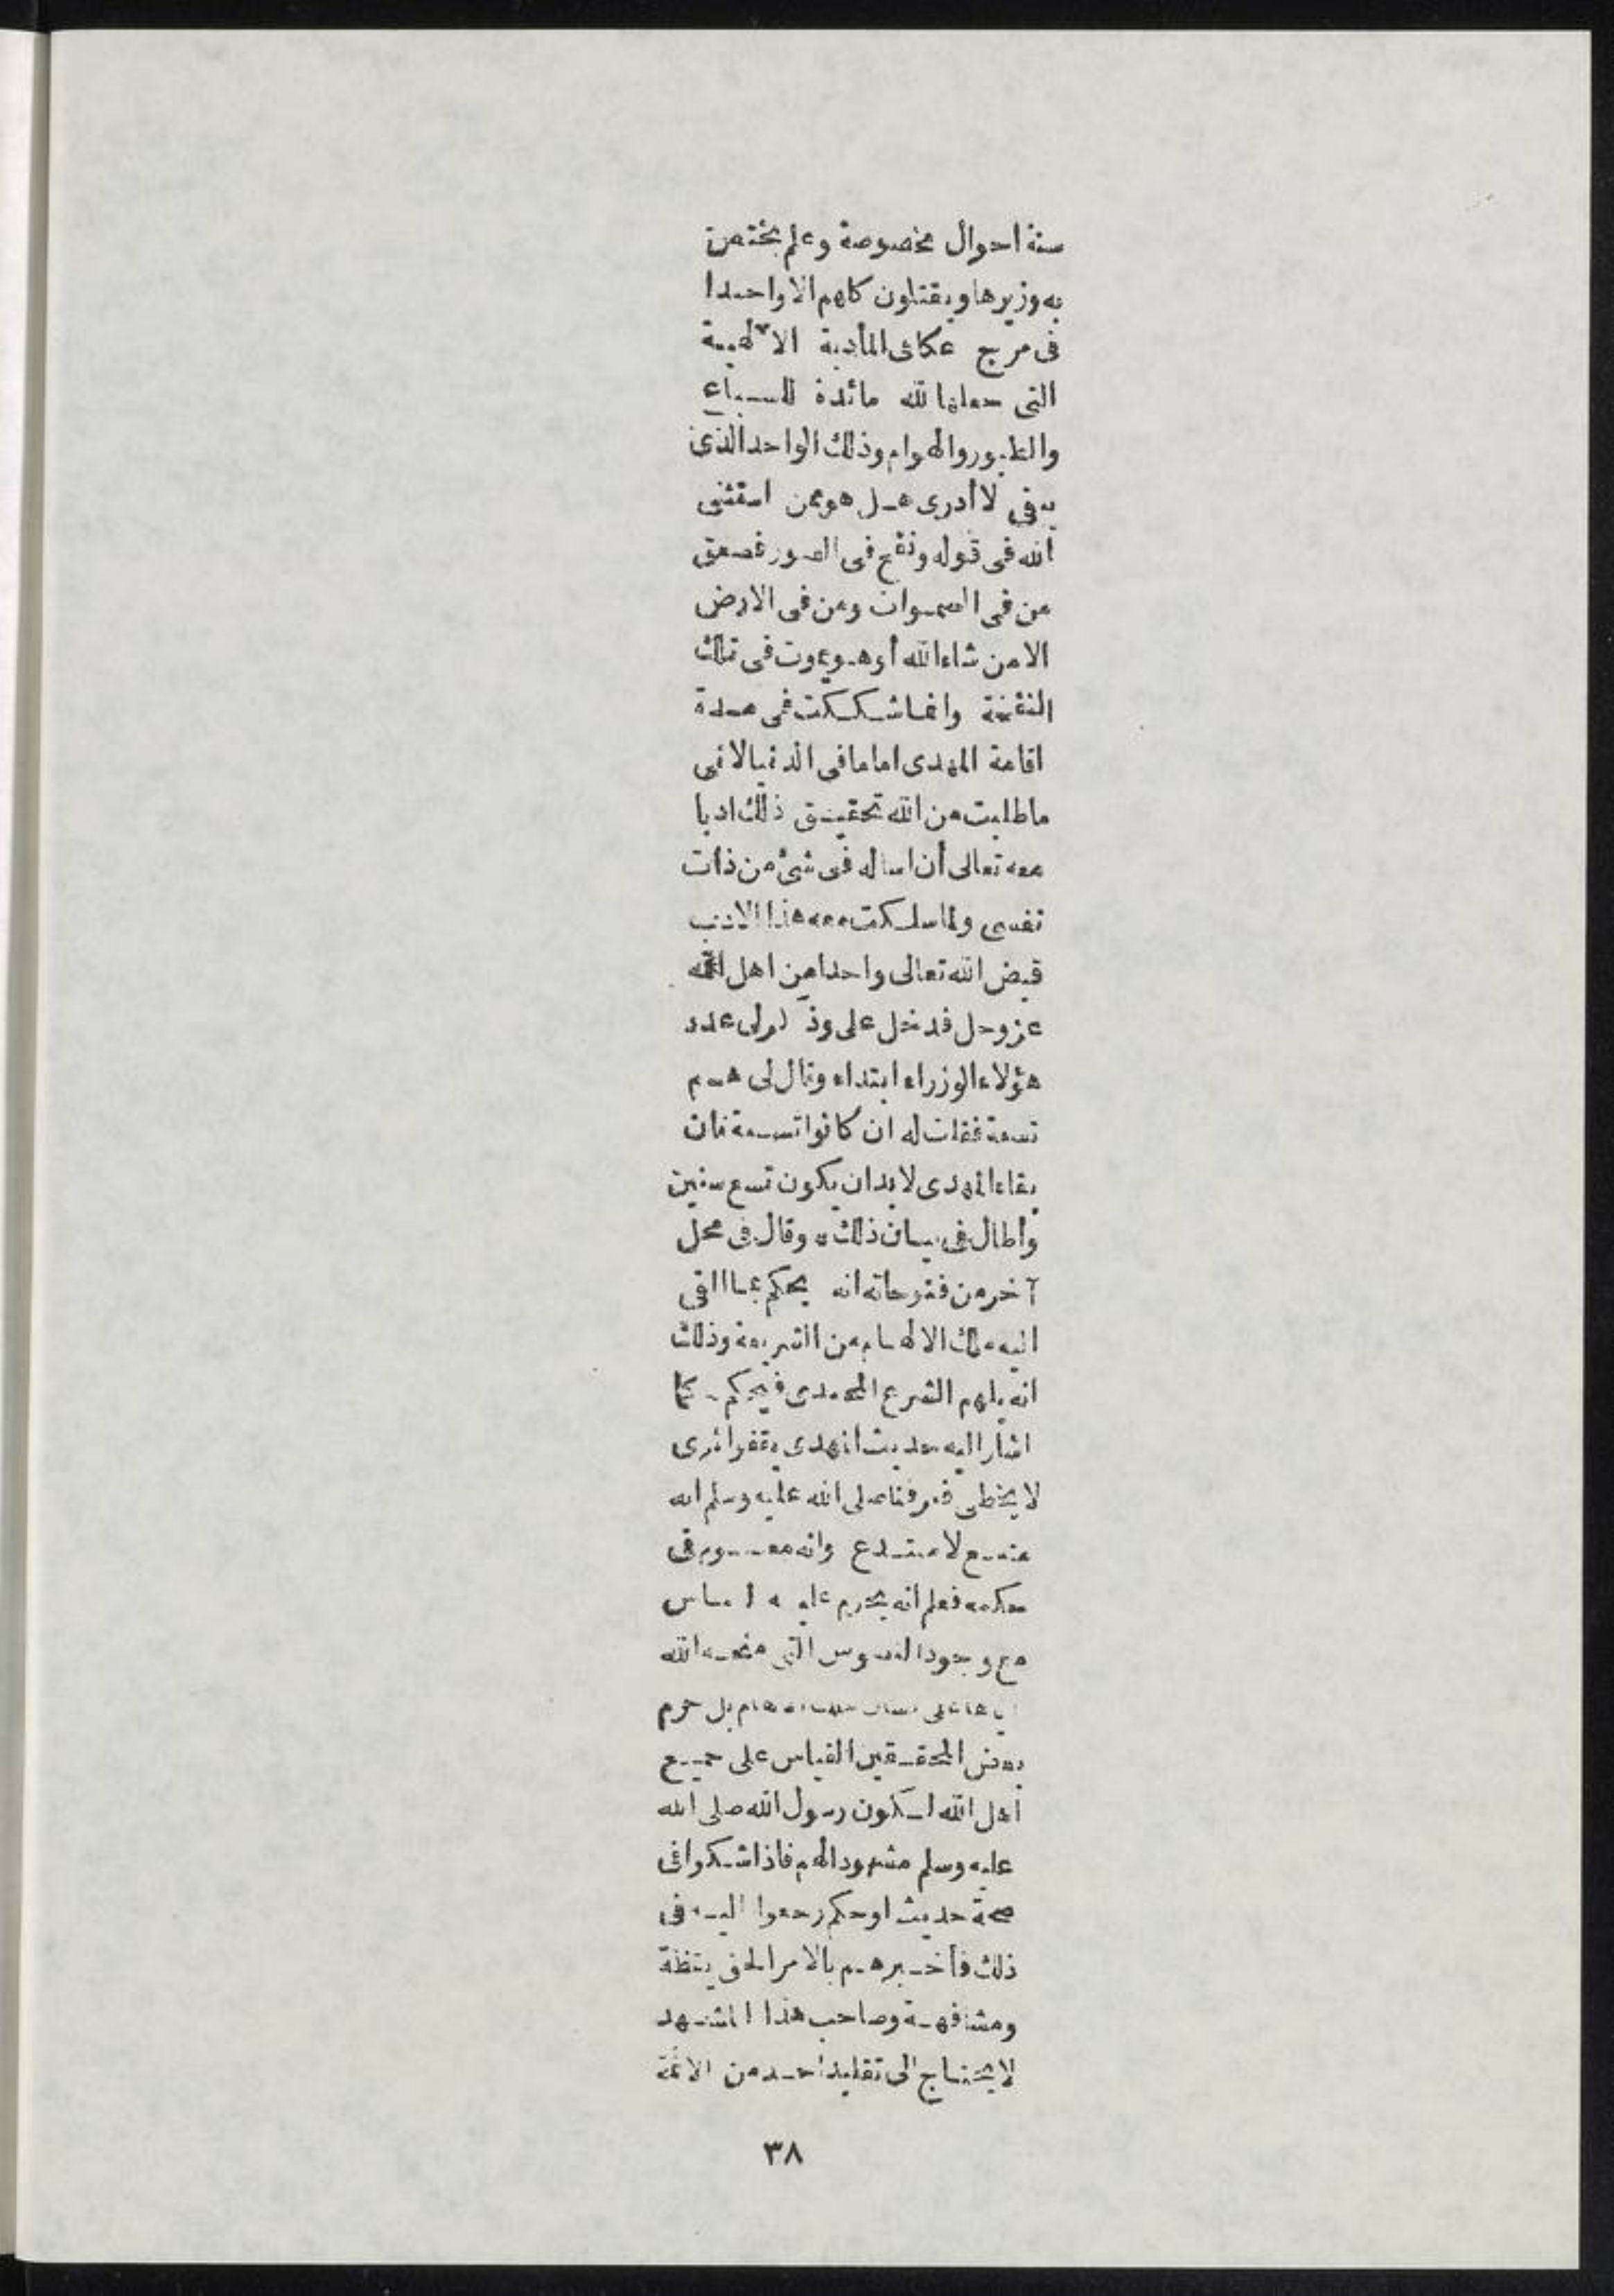 سنة احوال مخصوصة وعلم يختص
به وزيرها ويقتلون كلهم الا واحدا
فى مرج عكا فى المأدبة الالهية
التى جعلها الله مائدة للسباع
والطيور والهوام وذلك الواحد الذى
يبقى لا أدرى هل هو ممن استثنى
الله فى قوله ونفخ فى الصور فصعق
من فى السموات ومن فى الارض
الا من شاء الله أو هو يموت فى تلك
النفخة وانما شككت فى مدة
اقامة المهدى اماما فى الدنيا لانى
ما طلبت من الله تحقيق ذلك ادبا
معه تعالى أن اساله فى شئ من ذات
نفسى ولما سلكت معه هذا الادب
قيض الله تعالى واحدا من اهل الله
عز وجل فدخل على وذكر لى عدد
هؤلاء الوزراء ابتداء وقال لى هم
تسعة فقلت له ان كانوا تسعة فان
بقاء المهدى لا بد ان يكون تسع سنين
وأطال فى بيان ذلك، وقال فى محل
آخر من فتوحاته انه يحكم بما القى
اليه ملك الالهام من الشريعة وذلك
انه يلهم الشرع المحمدى فيحكم كما
اشار اليه حديث المهدى يقفو اثرى
لا يخطى فعرفنا صلى الله عليه وسلم انه
متبع لا مبتدع وانه معصوم فى
حكمه فعلم انه يحرم عليه القياس
مع وجود النصوص التى منحه الله
اياها على لسان ملك الالهام بل حرم
بعض المحققين القياس على جميع
أهل الله لكون رسول الله صلى الله
عليه وسلم مشهودا لهم فاذا شكوا فى
صحة حديث او حكم رجعوا اليه فى
ذلك فأخبرهم بالامر الحق يقظة
ومشافهة وصاحب هذا المشهد
لا يحتاج الى تقليد أحد من الائمة
٣٨